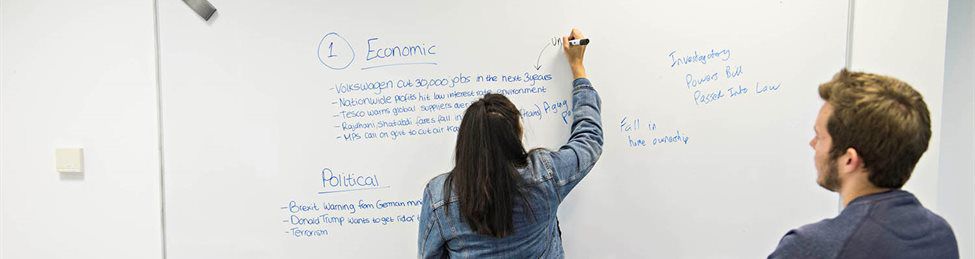 1 Economic
un
- Volkswagen cut 30,000 jobs in the next 3 years
- Nationwide profits hit low interest rate environment
- Tesco warns global suppliers over
- Rajdhani Shatabdi fares fall in (trains) Aging
- MPs call on govt to cut air
Political
- Brexit warning from German
- Donald Trump wants to get rid of
- Terrorism
Investigatory
Powers Bill
Passed Into Law
Fall in
home ownership